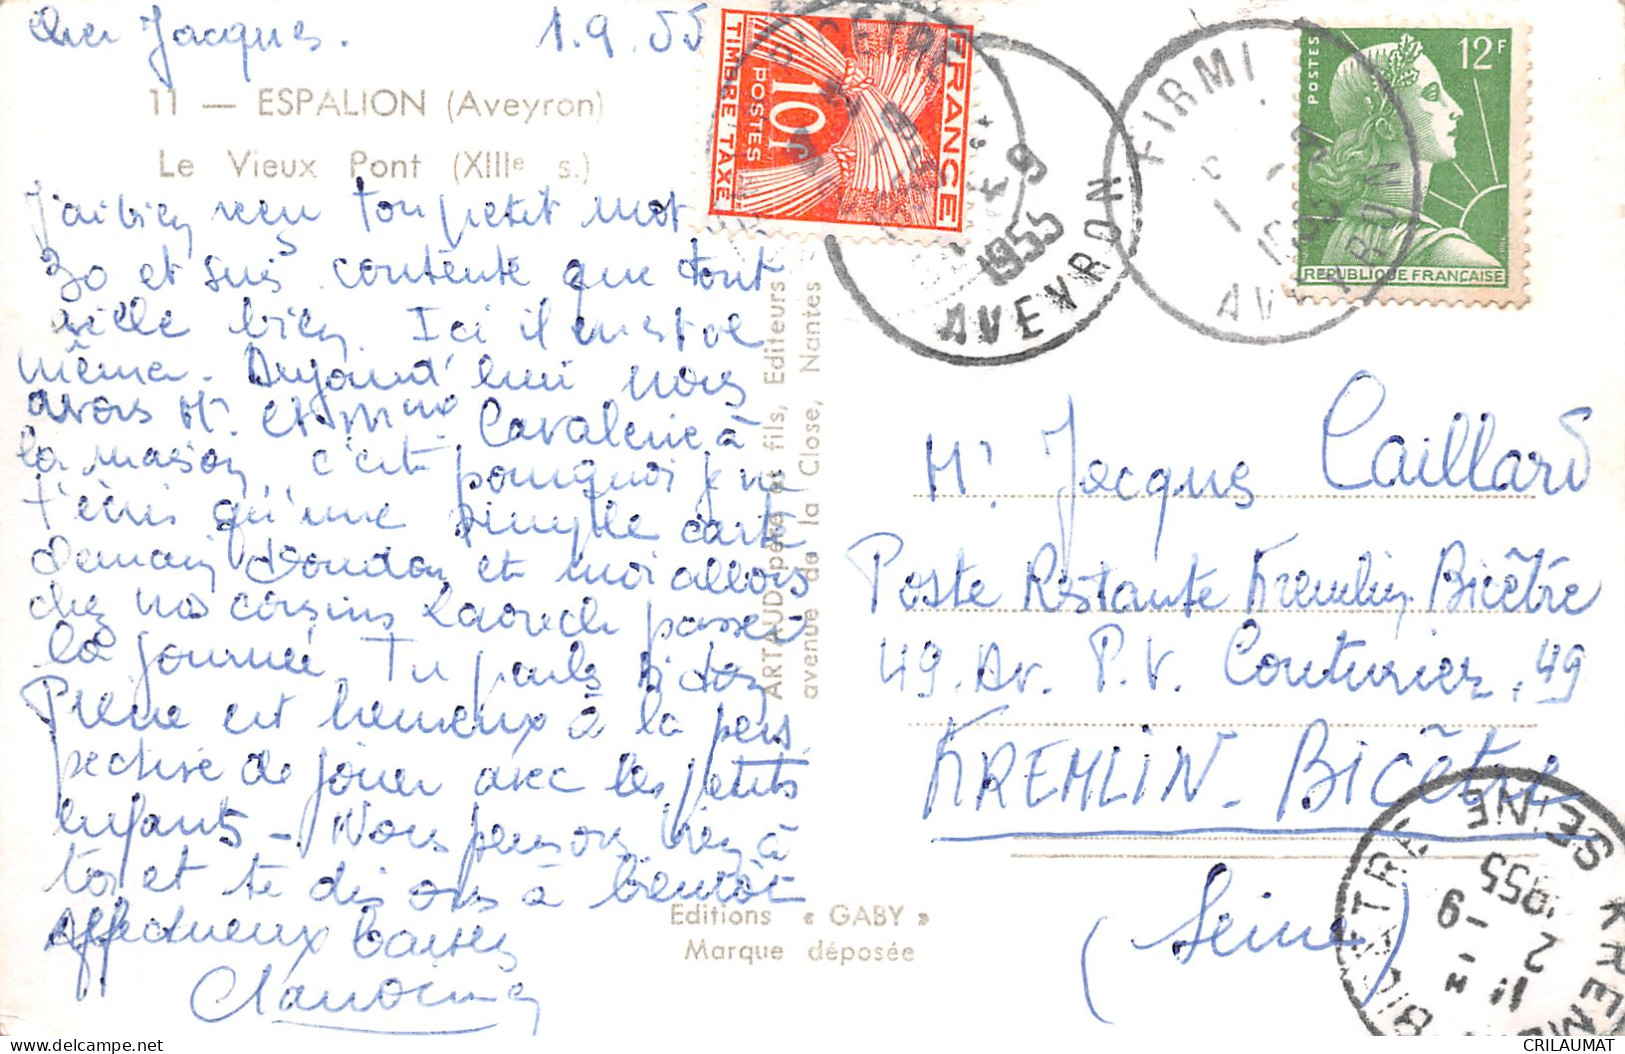 Cher Jacques. 1.9.55
11 — ESPALION (Aveyron)
Le Vieux Pont (XIIIe s.)
J'ai bien reçu ton petit mot
et suis contente que tout
aille bien Ici il en est de
même. Aujourd'hui nous
avons Mr. et Mme Cavalerie à
la maison, c'est pourquoi je ne
t'écris qu'une simple carte
Demain Doudou et moi allons
chez nos cousins passer
la journée. Tu parles si
Pierre est heureux à la pers
pective de jouer avec les petits
enfants - Nous pensons bien à
toi et te disons à bientôt
Affectueux baisers
ARTAUD père et fils, Editeurs
avenue de la Close, Nantes
Editions « GABY »
Marque déposée
FRANCE
10F
POSTES
TIMBRE TAXE
1955
AVEYRON
FIRMI
AVEYRON
POSTES
12F
REPUBLIQUE FRANÇAISE
Mr Jacques Caillard
Poste Restante Kremlin Bicêtre
49. Av. P.V. Couturier, 49
KREMLIN-BICÊTRE
(Seine)
KREMLIN BICETRE SEINE
11 H
2 - 9
1955
CRILAUMAT